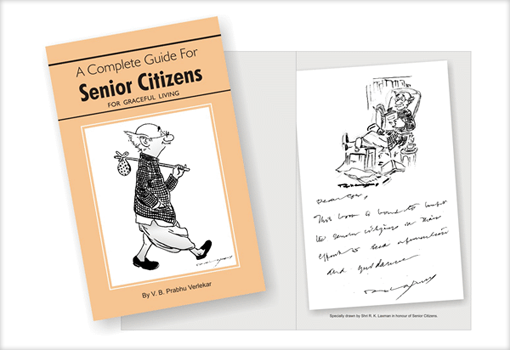 A Complete Guide For
Senior Citizens
FOR GRACEFUL LIVING
By V. B. Prabhu Verlekar
This book is bound to
the senior citizens in their
effort to seek
and guidance
Specially drawn by Shri R. K. Laxman in honour of Senior Citizens.